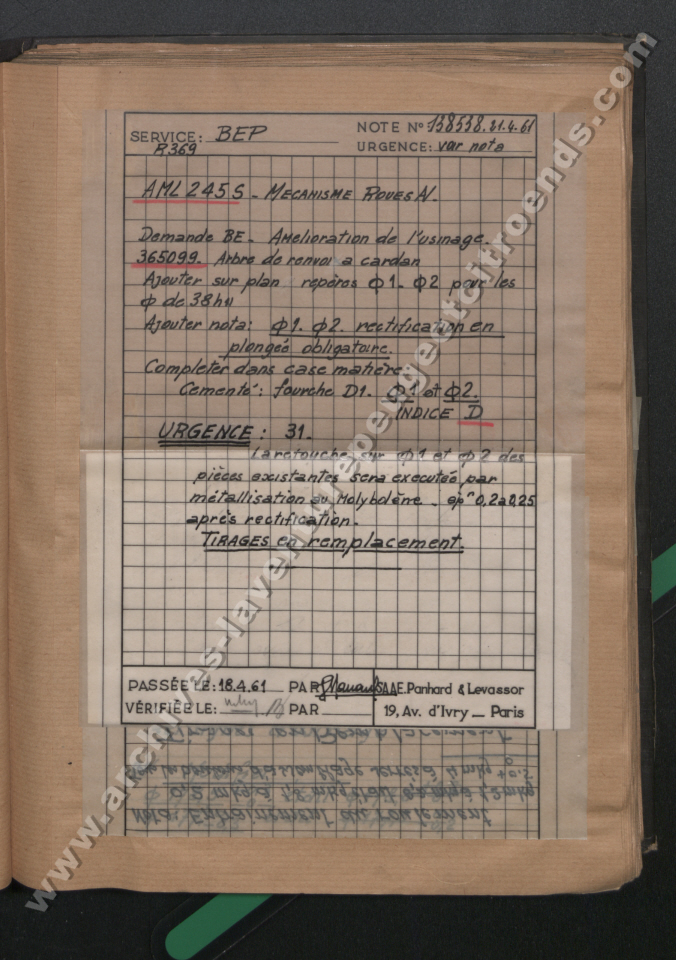 SERVICE: BEP
R369
NOTE N° 138538.21.4.61
URGENCE: voir nota
AML 245 S - MECANISME ROUES AV.
Demande BE - Amelioration de l'usinage.
365099. Arbre de renvoi a cardan
Ajouter sur plan repéros φ1. φ2 pour les
φ de 38h11
Ajouter nota: φ1. φ2. rectification en
plongée obligatoire.
Completer dans case matière
Cementé: fourche D1. φ1 et φ2.
INDICE D
URGENCE: 31.
La retouche sur φ1 et φ2 des
pièces existantes sera executée par
métallisation au Molybdène - ep^r 0,2 a 0,25
après rectification.
TIRAGES en remplacement.
PASSÉE LE: 18.4.61 PAR
VÉRIFIÉE LE: PAR
S.A.A.E. Panhard & Levassor
19, Av. d'Ivry - Paris
Tirages en remplacement
Nota: Entrainement du roulement
www.archives-laventurepeugeotcitroends.com